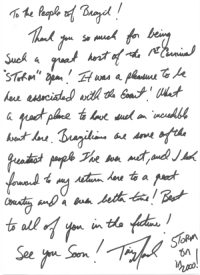 To the People of Brazil!
Thank you so much for being
such a great host of the 1st Carnival
"Storm" Open! It was a pleasure to be
here associated with the Event! What
a great place to have such an incredible
event here. Brazilians are some of the
greatest people I've ever met, and I look
forward to my return here to a great
Country and a even better time! Best
to all of you in the future!
See you Soon!
STORM
ON
in
2000!